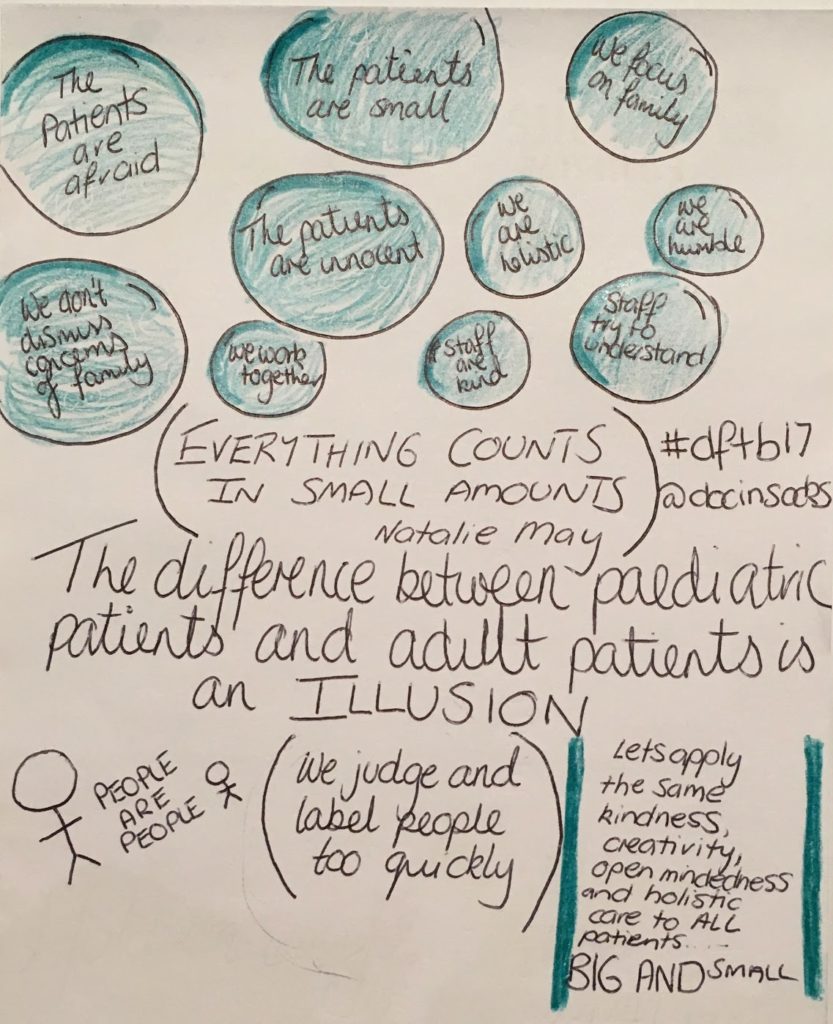 The
Patients
are
afraid
The patients
are small
We focus
on family
The patients
are innocent
We
are
holistic
We
are
humble
We don't
dismiss
concerns
of family
We work
together
Staff
are
kind
Staff
try to
understand
(EVERYTHING COUNTS
IN SMALL AMOUNTS)
Natalie May
#dftb17
@docinsocks
The difference between paediatric
patients and adult patients is
an ILLUSION
PEOPLE
ARE
PEOPLE
(We judge and
label people
too quickly)
Lets apply
the same
kindness,
creativity,
open mindedness
and holistic
care to ALL
patients....
BIG AND SMALL